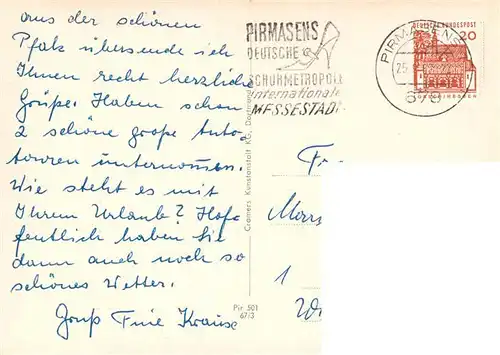 aus der schönen
Pfalz übersende ich
Ihnen recht herzliche
Grüße. Haben schon
2 schöne große Auto-
touren unternommen.
Wie steht es mit
Ihrem Urlaub? Hof-
fentlich haben Sie
dann auch noch so
schönes Wetter.
Gruß Fine Krause
Pir 501
67/3
Cramers Kunstanstalt KG, Dortmund
PIRMASENS
DEUTSCHE
SCHUHMETROPOLE
internationale
MESSESTADT
PIRMASENS
25.
DEUTSCHE BUNDESPOST
20
Fr
1